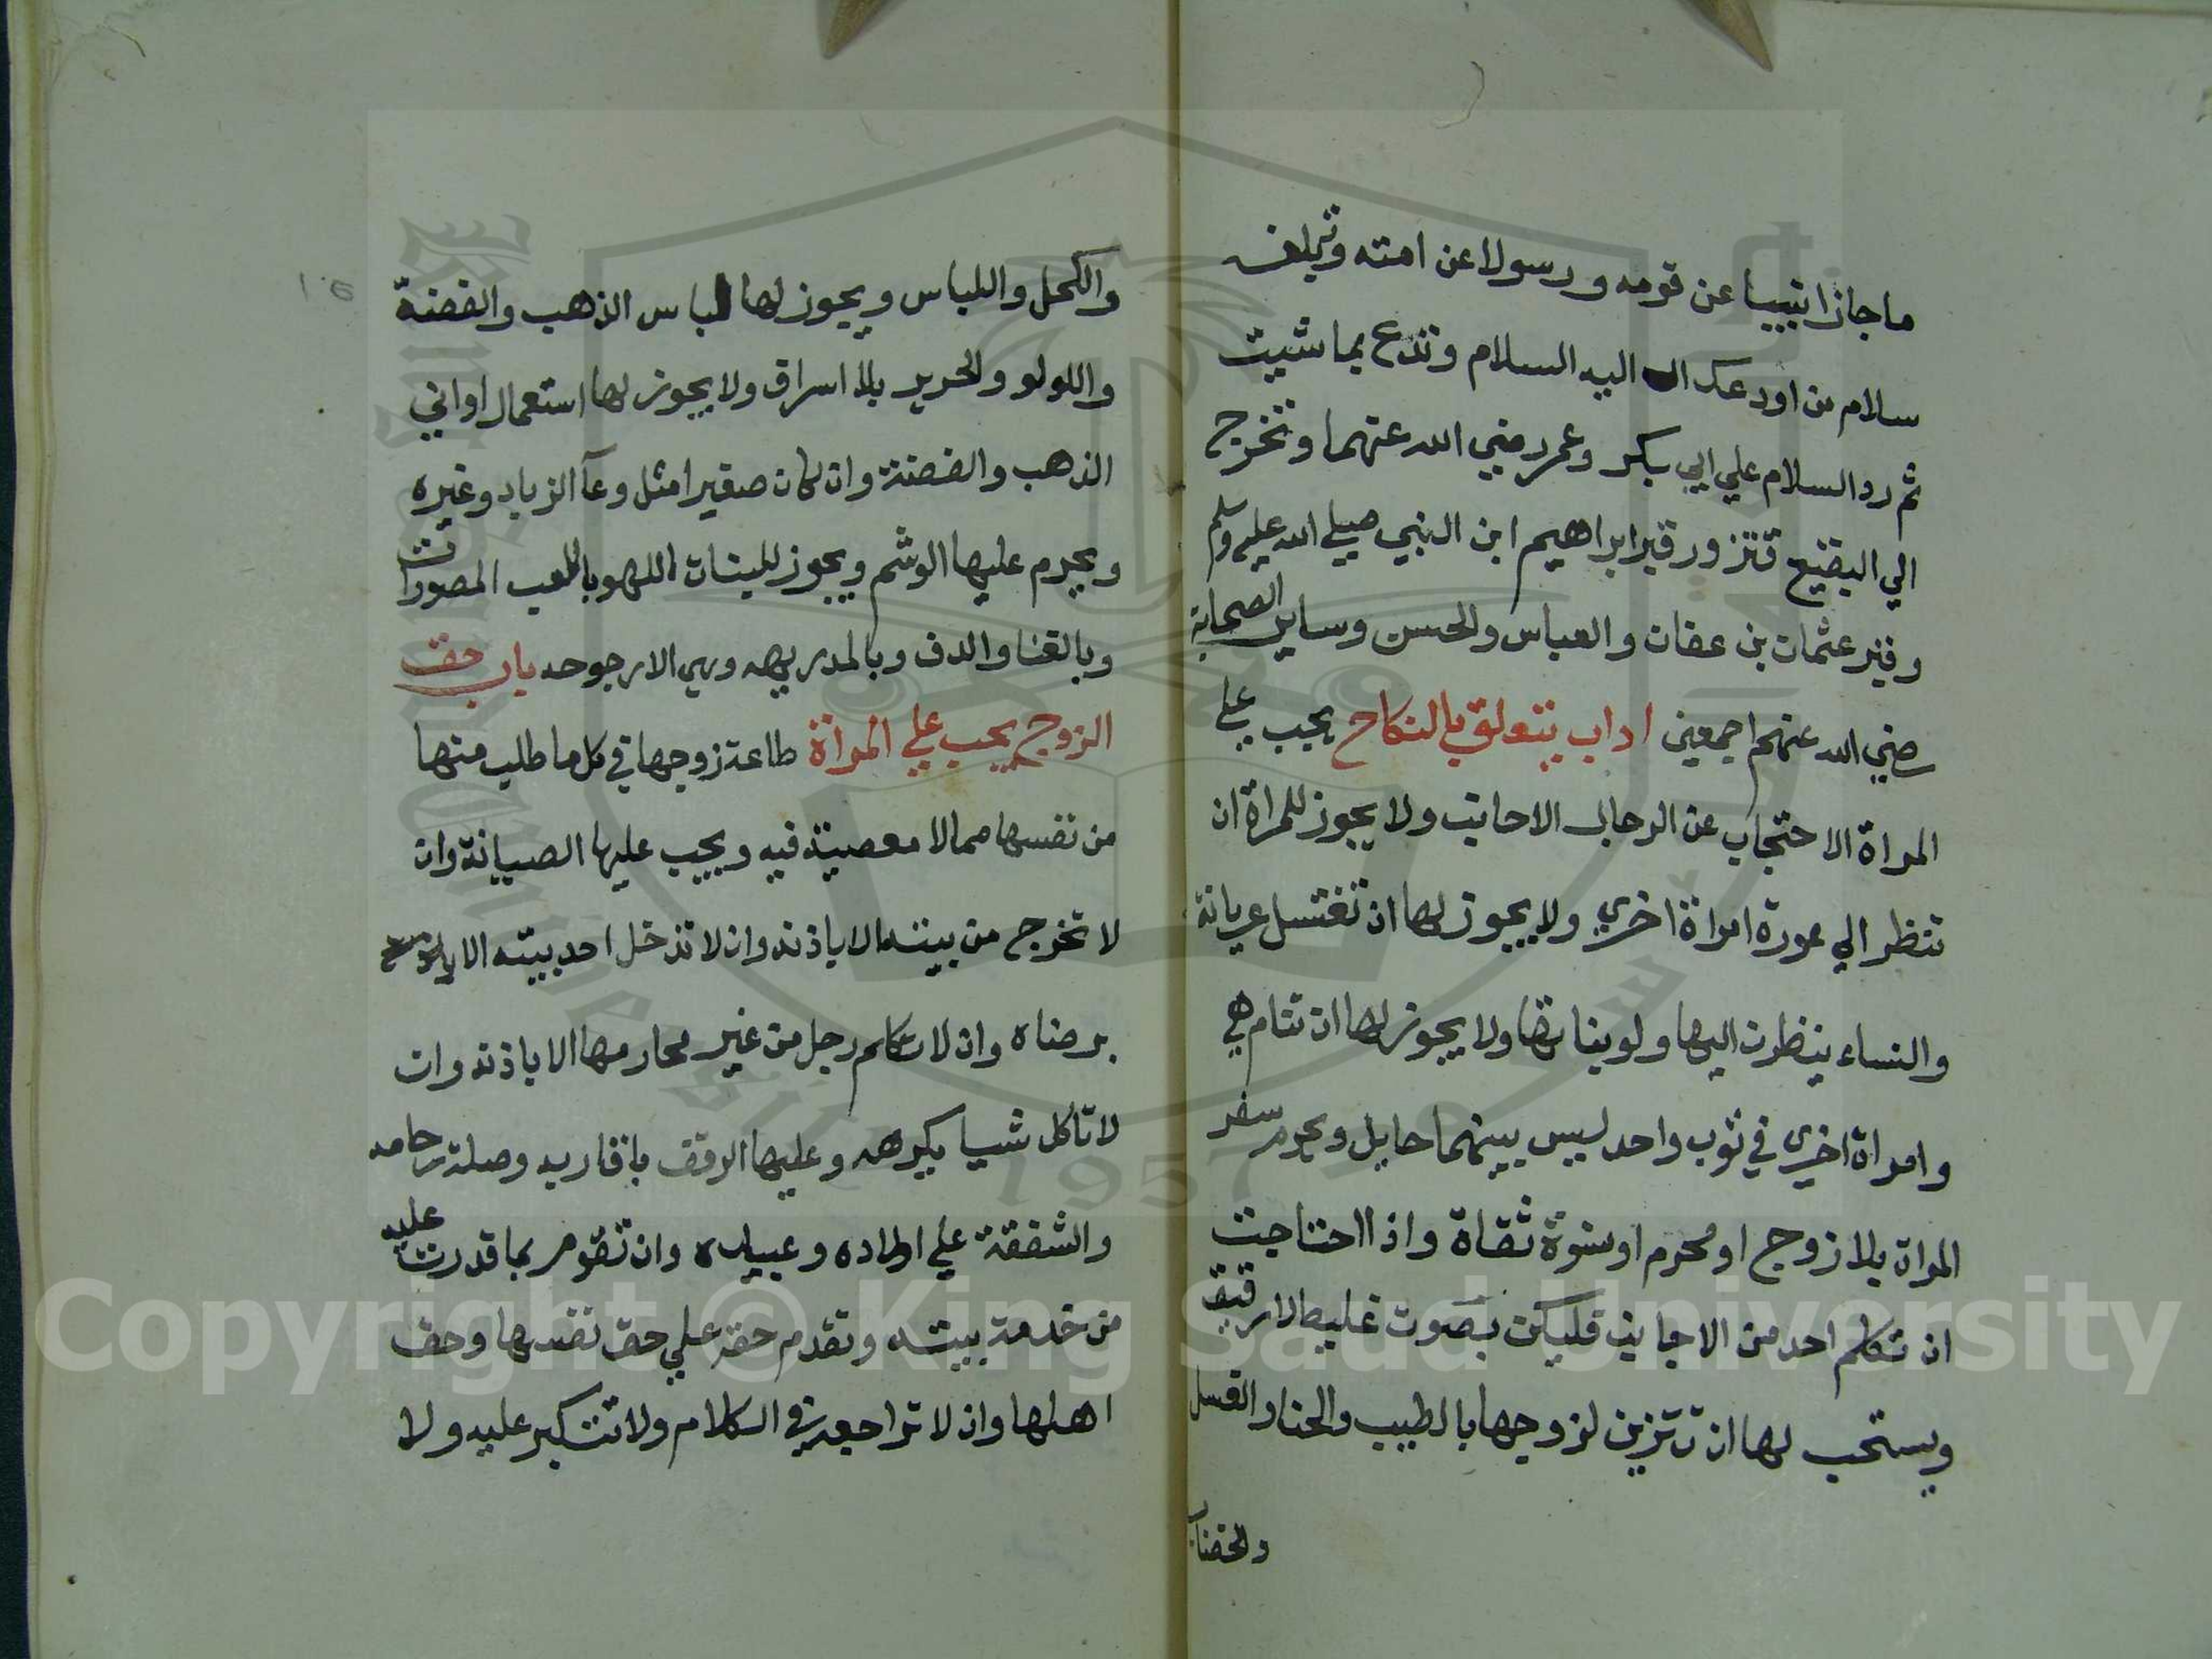 ما جازا نبيبا عن قومه ورسولا عن امته وتبلغه
سلام من اودعك اليه السلام وتدع بما شيت
ثم رد السلام علي ابي بكر وعمر رضي الله عنهما وتخرج
الي البقيع فتزور قبر ابراهيم ابن النبي صلى الله عليه وسلم
وقبر عثمان بن عفان والعباس والحسن وساير الصحابة
رضي الله عنهم اجمعين اداب يتعلق بالنكاح يجب على
المراة الاحتجاب عن الرجال الاجانب ولا يجوز للمراة ان
تنظر الي عورة امراة اخري ولا يجوز لها ان تغتسل عريانة
والنساء ينظرن اليها ولو بناتها ولا يجوز لها ان تنام هي
وامراة اخري في ثوب واحد ليس بينهما حايل ويحرم سفر
المراة بلا زوج او محرم او نسوة ثقاة واذا احتاجت
ان تتكلم احد من الاجانب فليكن بصوت غليظ لا رقيق
ويستحب لها ان تتزين لزوجها بالطيب والحنا والغسل
والخضاب
والكحل واللباس ويجوز لها لباس الذهب والفضة
واللولو والحرير بلا اسراف ولا يجوز لها استعمال اواني
الذهب والفضة وان كان صغيرا مثل وعآ الزباد وغيره
ويحرم عليها الوشم ويجوز للبنات اللهو باللعب المصورات
وبالغنا والدف وبالمدريهه وهي الارجوحه باب حق
الزوج يجب علي المراة طاعة زوجها في كل ما طلب منها
من نفسها مما لا معصية فيه ويجب عليها الصيانة وان
لا تخرج من بيته الا باذنه وان لا تدخل احد بيته الا
برضاه وان لا تكلم رجل من غير محارمها الا باذنه وان
لا تاكل شيا يكرهه وعليها الرفق باقاربه وصلة رحامه
والشفقة علي اولاده وعبيده وان تقوم بما قدرت عليه
من خدمة بيته وتقدم حقه علي حق نفسها وحق
اهلها وان لا تراجعه في الكلام ولا تتكبر عليه ولا
Copyright © King Saud University
1957